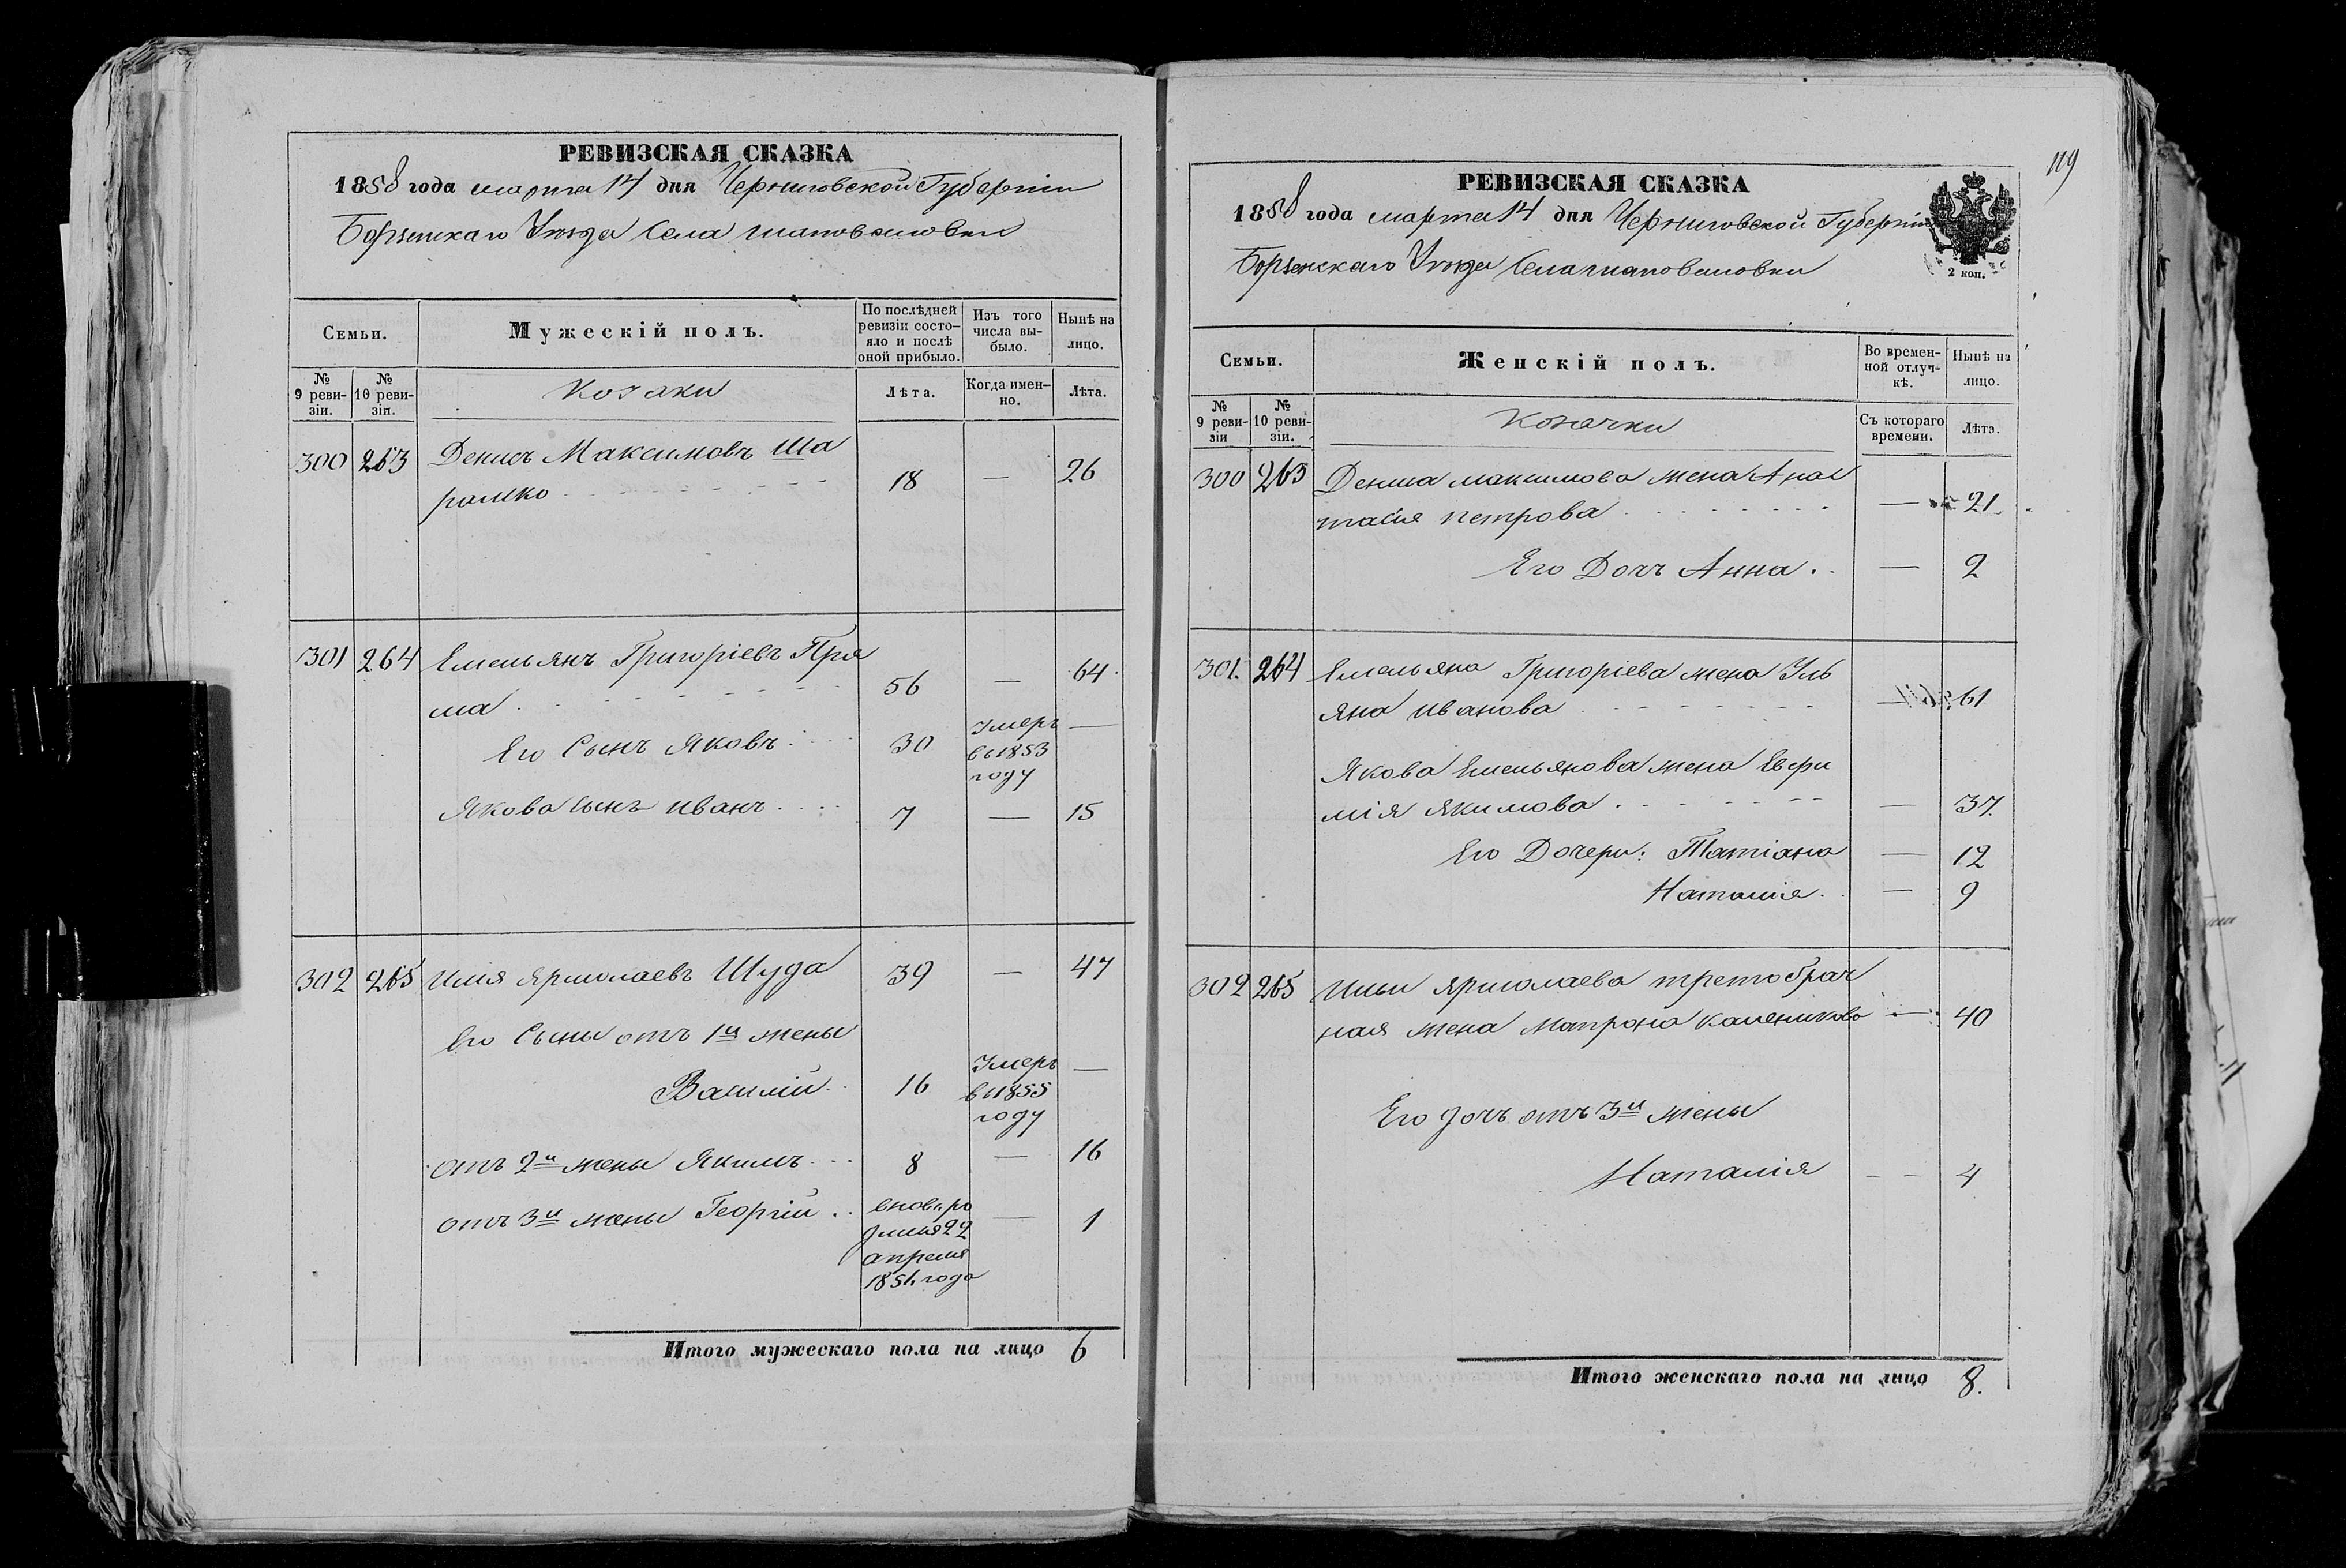 РЕВИЗСКАЯ СКАЗКА
1858 года марта 14 дня Черниговской Губерніи
Борзенскаго Уѣзда Села Шаповаловки
Семьи.
Мужескій полъ.
По послѣдней ревизіи состо-
яло и послѣ оной прибыло.
Изъ того числа вы-
было.
Нынѣ на лицо.
№ 9 реви-
зіи.
№ 10 реви-
зіи.
Козаки
Лѣта.
Когда имен-
но.
Лѣта.
300 263 Денисъ Максимовъ Ша
рамко 18 — 26
301 264 Емельянъ Григоріевъ Пря
ма 56 — 64
Его Сынъ Яковъ 30 Умеръ въ 1853 году —
Якова Сынъ Иванъ 7 — 15
302 265 Илія Ярмолаевъ Шуда 39 — 47
Его Сыны отъ 1й жены
Василій 16 Умеръ въ 1855 году —
отъ 2й жены Якимъ 8 — 16
отъ 3й жены Георгій — 1
апреля
года
Итого мужескаго пола на лицо 6
119
РЕВИЗСКАЯ СКАЗКА
1858 года марта 14 дня Черниговской Губерніи
Борзенскаго Уѣзда Села Шаповаловки
2 коп.
Семьи.
Женскій полъ.
Во времен-
ной отлуч-
кѣ.
Нынѣ на лицо.
№ 9 реви-
зіи
№ 10 реви-
зіи.
Козачки
Съ котораго времени.
Лѣта.
300 263 Дениса Максимова жена Анас
тасія Петрова — 21
Его Дочъ Анна — 2
301. 264 Емельяна Григоріева жена Уль
яна Иванова — 61
Якова Емельянова жена Евфи
мія Якимова — 37.
Его Дочери: Татіана — 12
Наталія — 9
302 265 Ильи Ярмолаева третобрач
ная жена Матрона Каленикова — 40
Его дочъ отъ 3й жены
Наталія — 4
Итого женскаго пола на лицо 8.